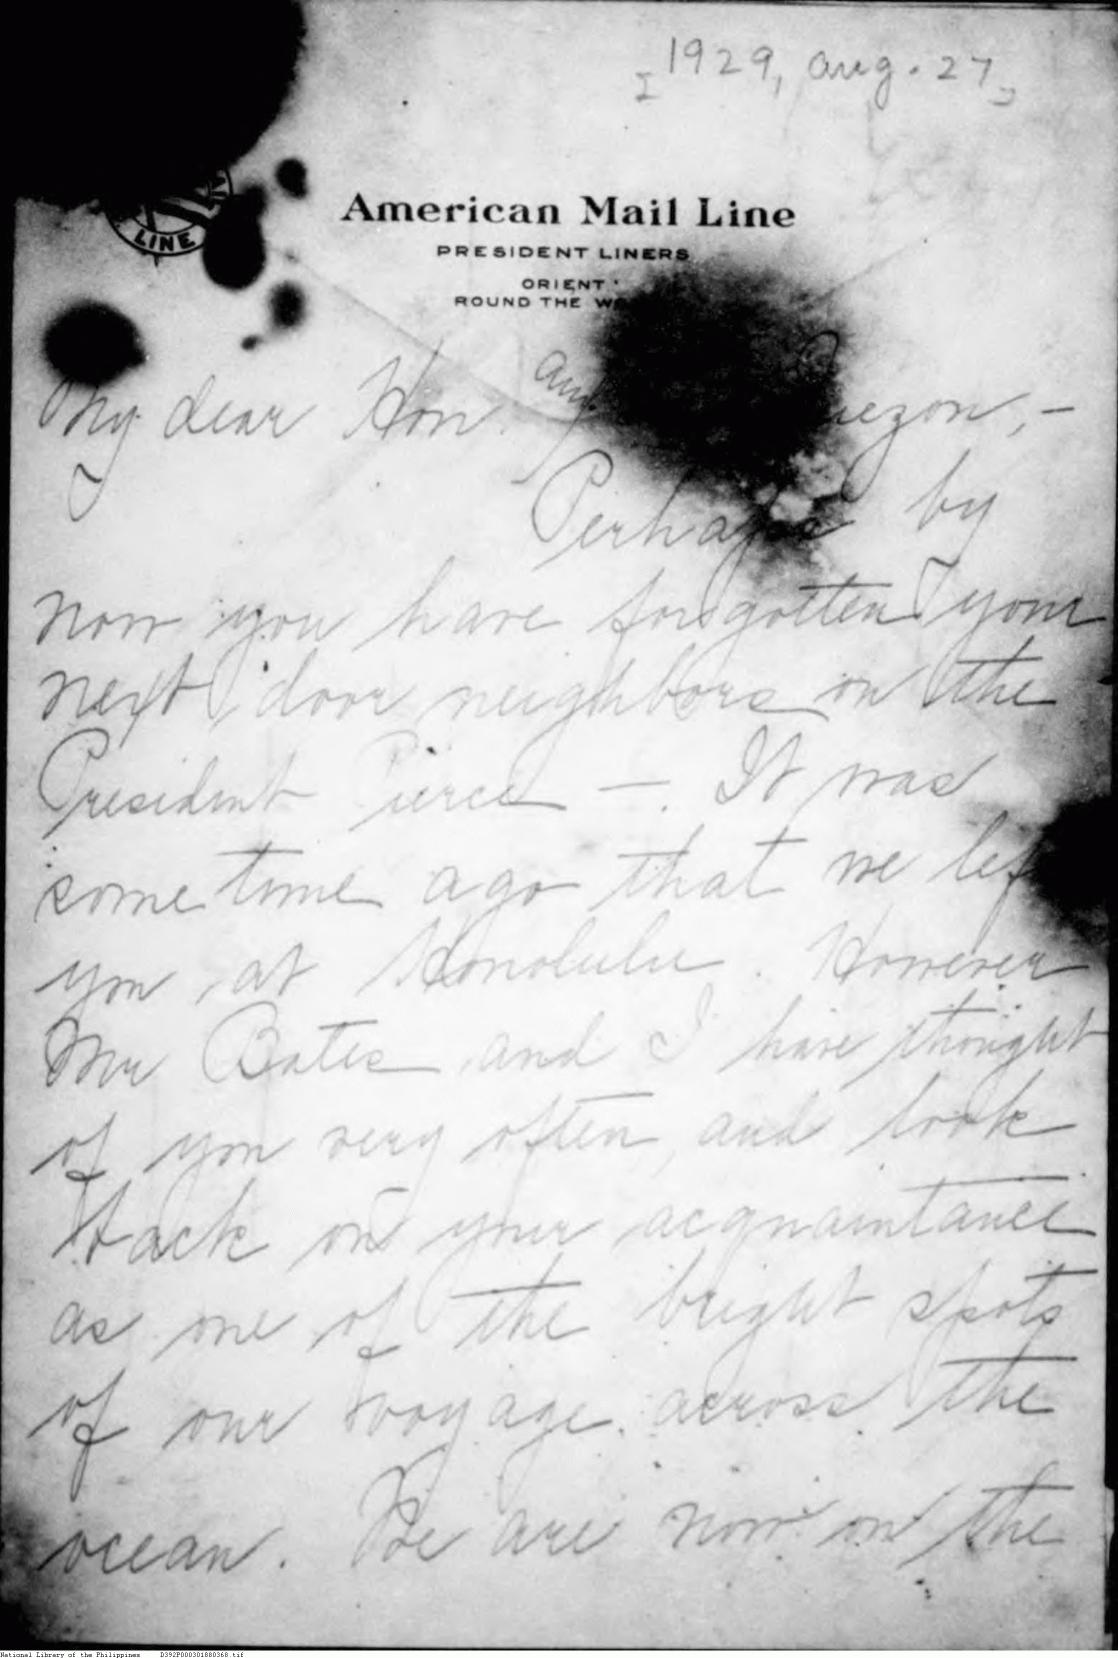 [1929, Aug. 27]
LINE
American Mail Line
PRESIDENT LINERS
ORIENT
ROUND THE
My dear Hon. Quezon, -
Perhaps by
now you have forgotten your
next door neighbors on the
President Pierce - . It was
some time ago that we left
you at Honolulu. However
Mr Bates and I have thought
of you very often, and look
back on your acquaintance
as one of the bright spots
of our voyage across the
ocean. We are now on the
National Library of the Philippines D392P000301880368.tif